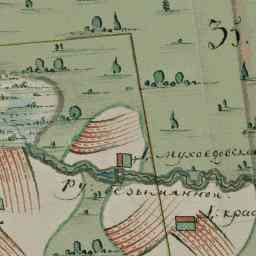 д. Мухоедовска
ру: безымянной
д. крас